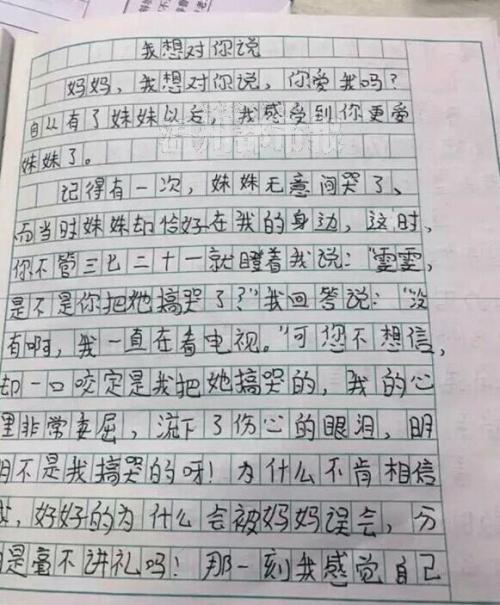 我想对你说
妈妈,我想对你说,你爱我吗?
自从有了妹妹以后,我感受到你更爱
妹妹了。
记得有一次,妹妹无意间哭了、
而当时妹妹却恰好在我的身边,这时,
你不管三七二十一就瞪着我说:“雯雯,
是不是你把她搞哭了?”我回答说:“没
有啊,我一直在看电视。”可您不想信,
却一口咬定是我把她搞哭的,我的心
里非常委屈,流下了伤心的眼泪,明
明不是我搞哭的呀!为什么不肯相信
,好好的为什么会被妈妈误会,分
明是毫不讲礼吗!那一刻我感觉自己